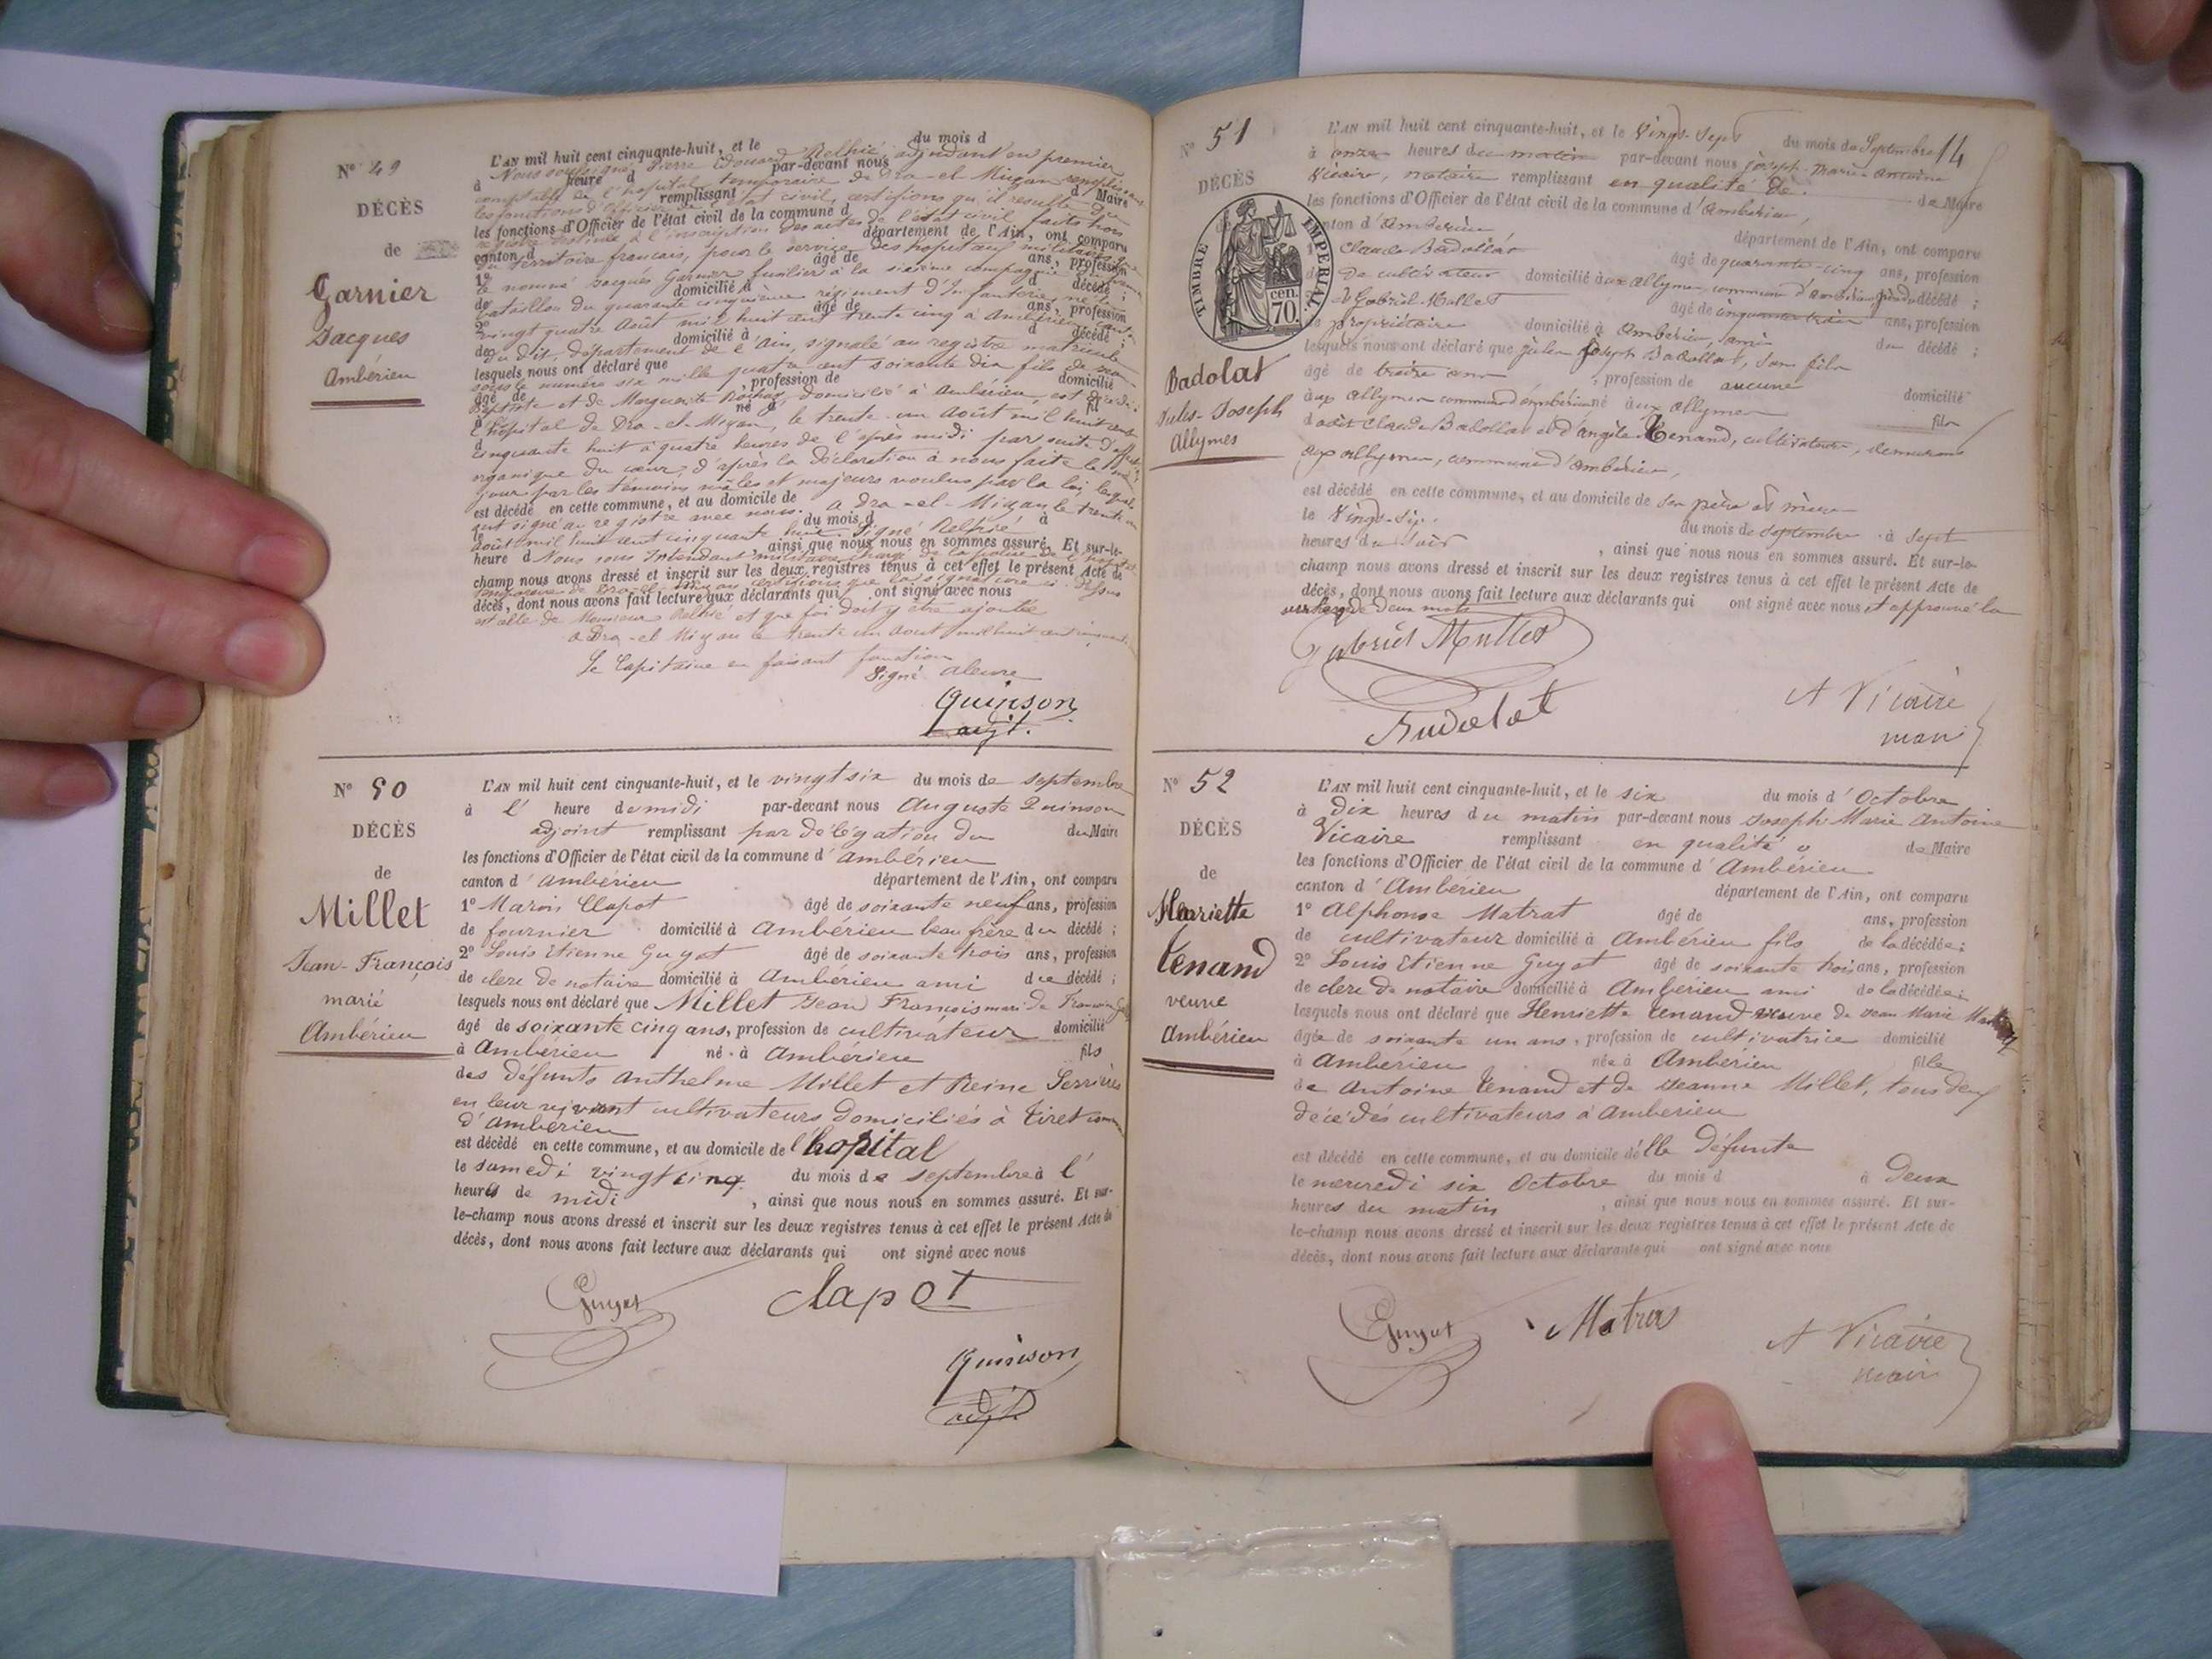 N° 49
DÉCÈS
de
Garnier
Jacques
Ambérieu
L'AN mil huit cent cinquante-huit, et le du mois d
Nous soussigné Pierre Edouard adjudant en premier
à heure d par-devant nous
comptable de l'hopital temporaire de Dra-el-Mizan remplissant
remplissant d Maire
les fonctions d'Officier de l'état civil, certifions qu'il résulte du
les fonctions d'Officier de l'état civil de la commune d
registre destiné à l'inscription des actes de l'état civil faits hors
canton d département de l'Ain, ont comparu
du territoire français, pour le service des hopitaux militaires que
1° âgé de ans, profession
le nommé Jacques Garnier fusilier à la sixième compagnie
de domicilié à d décédé ;
bataillon du quarante cinquième régiment d'Infanterie, né le
2° âgé de ans, profession
vingt quatre Août mil huit cent trente cinq à Ambérieu
de domicilié à d décédé ;
du dit, département de l'Ain, signalé au registre matricule
lesquels nous ont déclaré que
sous le numéro six mille quatre cent soixante dix fils de Jean
âgé de , profession de domicilié
Baptiste et de Marguerite domicilié à Ambérieu, est décédé à
à né à fil
l'hôpital de Dra-el-Mizan, le trente-un Août mil huit cent
d
cinquante huit à quatre heures de l'après midi par suite d'affection
organique du cœur, d'après la déclaration à nous faite le même
jour par les témoins mâles et majeurs voulus par la loi, lesquels
est décédé en cette commune, et au domicile de
ont signé au registre avec nous. A Dra-el-Mizan le trente un
le du mois d à
août mil huit cent cinquante huit signé
heure d , ainsi que nous nous en sommes assuré. Et sur-le-
Nous sous Intendant militaire chargé de la police de l'hopital
champ nous avons dressé et inscrit sur les deux registres tenus à cet effet le présent Acte de
temporaire de Dra-el-Mizan certifions que la signature ci-dessus
décès, dont nous avons fait lecture aux déclarants qui ont signé avec nous
est celle de Monsieur et que foi doit y être ajoutée
a Dra-el Mizan le trente un août mil huit cent cinquante
Le Capitaine en faisant fonction
Signé
Quinson
adjt.
N° 50
DÉCÈS
de
Millet
Jean-François
marié
Ambérieu
L'AN mil huit cent cinquante-huit, et le vingt six du mois de septembre
à l' heure de midi par-devant nous Auguste Quinson
adjoint remplissant par délégation du du Maire
les fonctions d'Officier de l'état civil de la commune d'Ambérieu
canton d'Ambérieu département de l'Ain, ont comparu
1° Clapot âgé de soixante neuf ans, profession
de fournier domicilié à Ambérieu beau frère du décédé ;
2° Louis Etienne Guyot âgé de soixante trois ans, profession
de clerc de notaire domicilié à Ambérieu ami du décédé ;
lesquels nous ont déclaré que Millet Jean François mari de
âgé de soixante cinq ans, profession de cultivateur domicilié
à Ambérieu né à Ambérieu fils
des défunts Anthelme Millet et Reine Serrières
en leur vivant cultivateurs domiciliés à Tiret
d'Ambérieu
est décédé en cette commune, et au domicile de l'hopital
le samedi vingt cinq du mois de septembre à l'
heures de midi , ainsi que nous nous en sommes assuré. Et sur-
le-champ nous avons dressé et inscrit sur les deux registres tenus à cet effet le présent Acte de
décès, dont nous avons fait lecture aux déclarants qui ont signé avec nous
Guyot Clapot
Quinson
adjt.
14
N° 51
DÉCÈS
TIMBRE IMPÉRIAL.
cen.
70.
Badolat
Jules-Joseph
Allymes
L'AN mil huit cent cinquante-huit, et le vingt-sept du mois de Septembre
à onze heures du matin par-devant nous Joseph-Marie Antoine
Vicaire, notaire remplissant en qualité de de Maire
les fonctions d'Officier de l'état civil de la commune d'Ambérieu,
canton d'Ambérieu département de l'Ain, ont comparu
Claude Badollat âgé de quarante-cinq ans, profession
de cultivateur domicilié aux Allymes commune d'Ambérieu père du décédé ;
Gabriel Mullet âgé de ans, profession
propriétaire domicilié à Ambérieu, ami du décédé ;
lesquels nous ont déclaré que Jules Joseph Badollat, son fils
âgé de treize ans , profession de aucune domicilié
aux Allymes commune d'Ambérieu né aux Allymes fils
dudit Claude Badollat et d'Angèle Tenand, cultivateurs, demeurant
aux Allymes, commune d'Ambérieu,
est décédé en cette commune, et au domicile de ses père et mère
le vingt-six du mois de septembre à sept
heures du soir , ainsi que nous nous en sommes assuré. Et sur-le-
champ nous avons dressé et inscrit sur les deux registres tenus à cet effet le présent Acte de
décès, dont nous avons fait lecture aux déclarants qui ont signé avec nous et approuvé la
surcharge de deux mots
Gabriel Mullet
Badolat
A Vicaire
maire
N° 52
DÉCÈS
de
Henriette
Tenand
veuve
Ambérieu
L'AN mil huit cent cinquante-huit, et le six du mois d'Octobre
à Dix heures du matin par-devant nous Joseph Marie Antoine
Vicaire remplissant en qualité de Maire
les fonctions d'Officier de l'état civil de la commune d'Ambérieu
canton d'Ambérieu département de l'Ain, ont comparu
1° Alphonse Matrat âgé de ans, profession
de cultivateur domicilié à Ambérieu fils de la décédée ;
2° Louis Etienne Guyot âgé de soixante trois ans, profession
de clerc de notaire domicilié à Ambérieu ami de la décédée ;
lesquels nous ont déclaré que Henriette Tenand veuve de Jean Marie
âgée de soixante un ans, profession de cultivatrice domicilié
à Ambérieu née à Ambérieu fille
de Antoine Tenand et de Jeanne Millet, tous deux
décédés cultivateurs à Ambérieu
est décédé en cette commune, et au domicile de lle défunte
le mercredi six Octobre du mois d à Deux
heures du matin , ainsi que nous nous en sommes assuré. Et sur-
le-champ nous avons dressé et inscrit sur les deux registres tenus à cet effet le présent Acte de
décès, dont nous avons fait lecture aux déclarants qui ont signé avec nous
Guyot Matras A Vicaire
maire